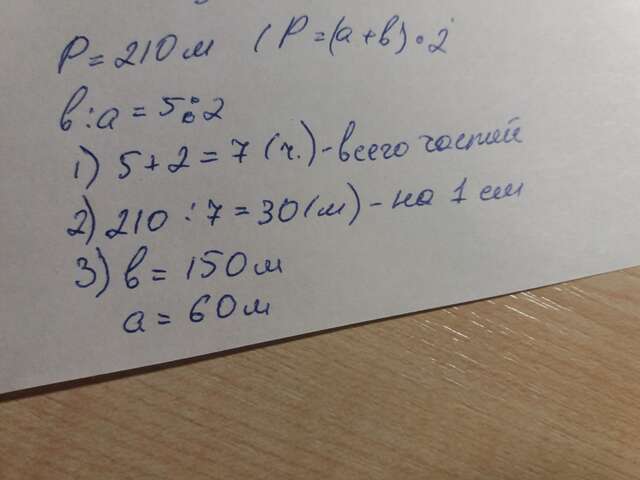 P = 210 м (P = (a + b) • 2
b : a = 5 : 2
1) 5 + 2 = 7 (ч.) - всего частей
2) 210 : 7 = 30 (м) - на 1 см
3) b = 150 м
a = 60 м